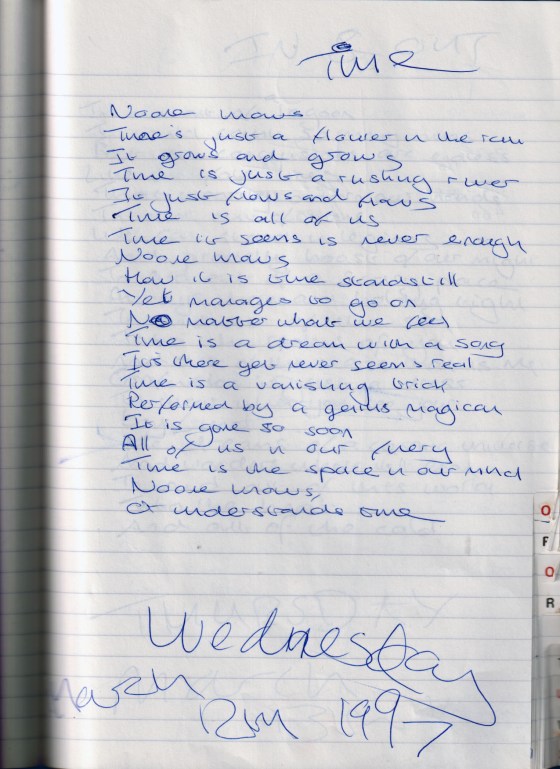 Time
Noone knows
There's just a flower in the rain
It grows and grows
Time is just a rushing river
It just flows and flows
Time is all of us
Time it seems is never enough
Noone knows
How it is time standstill
Yet manages to go on
No matter what we feel
Time is a dream with a song
It's there yet never seems real
Time is a vanishing trick
Performed by a genius magician
It is gone so soon
All of us in our
Time is the space in our mind
Noone knows,
Or understands time
Wednesday
March
12th 1997
O
F
O
R